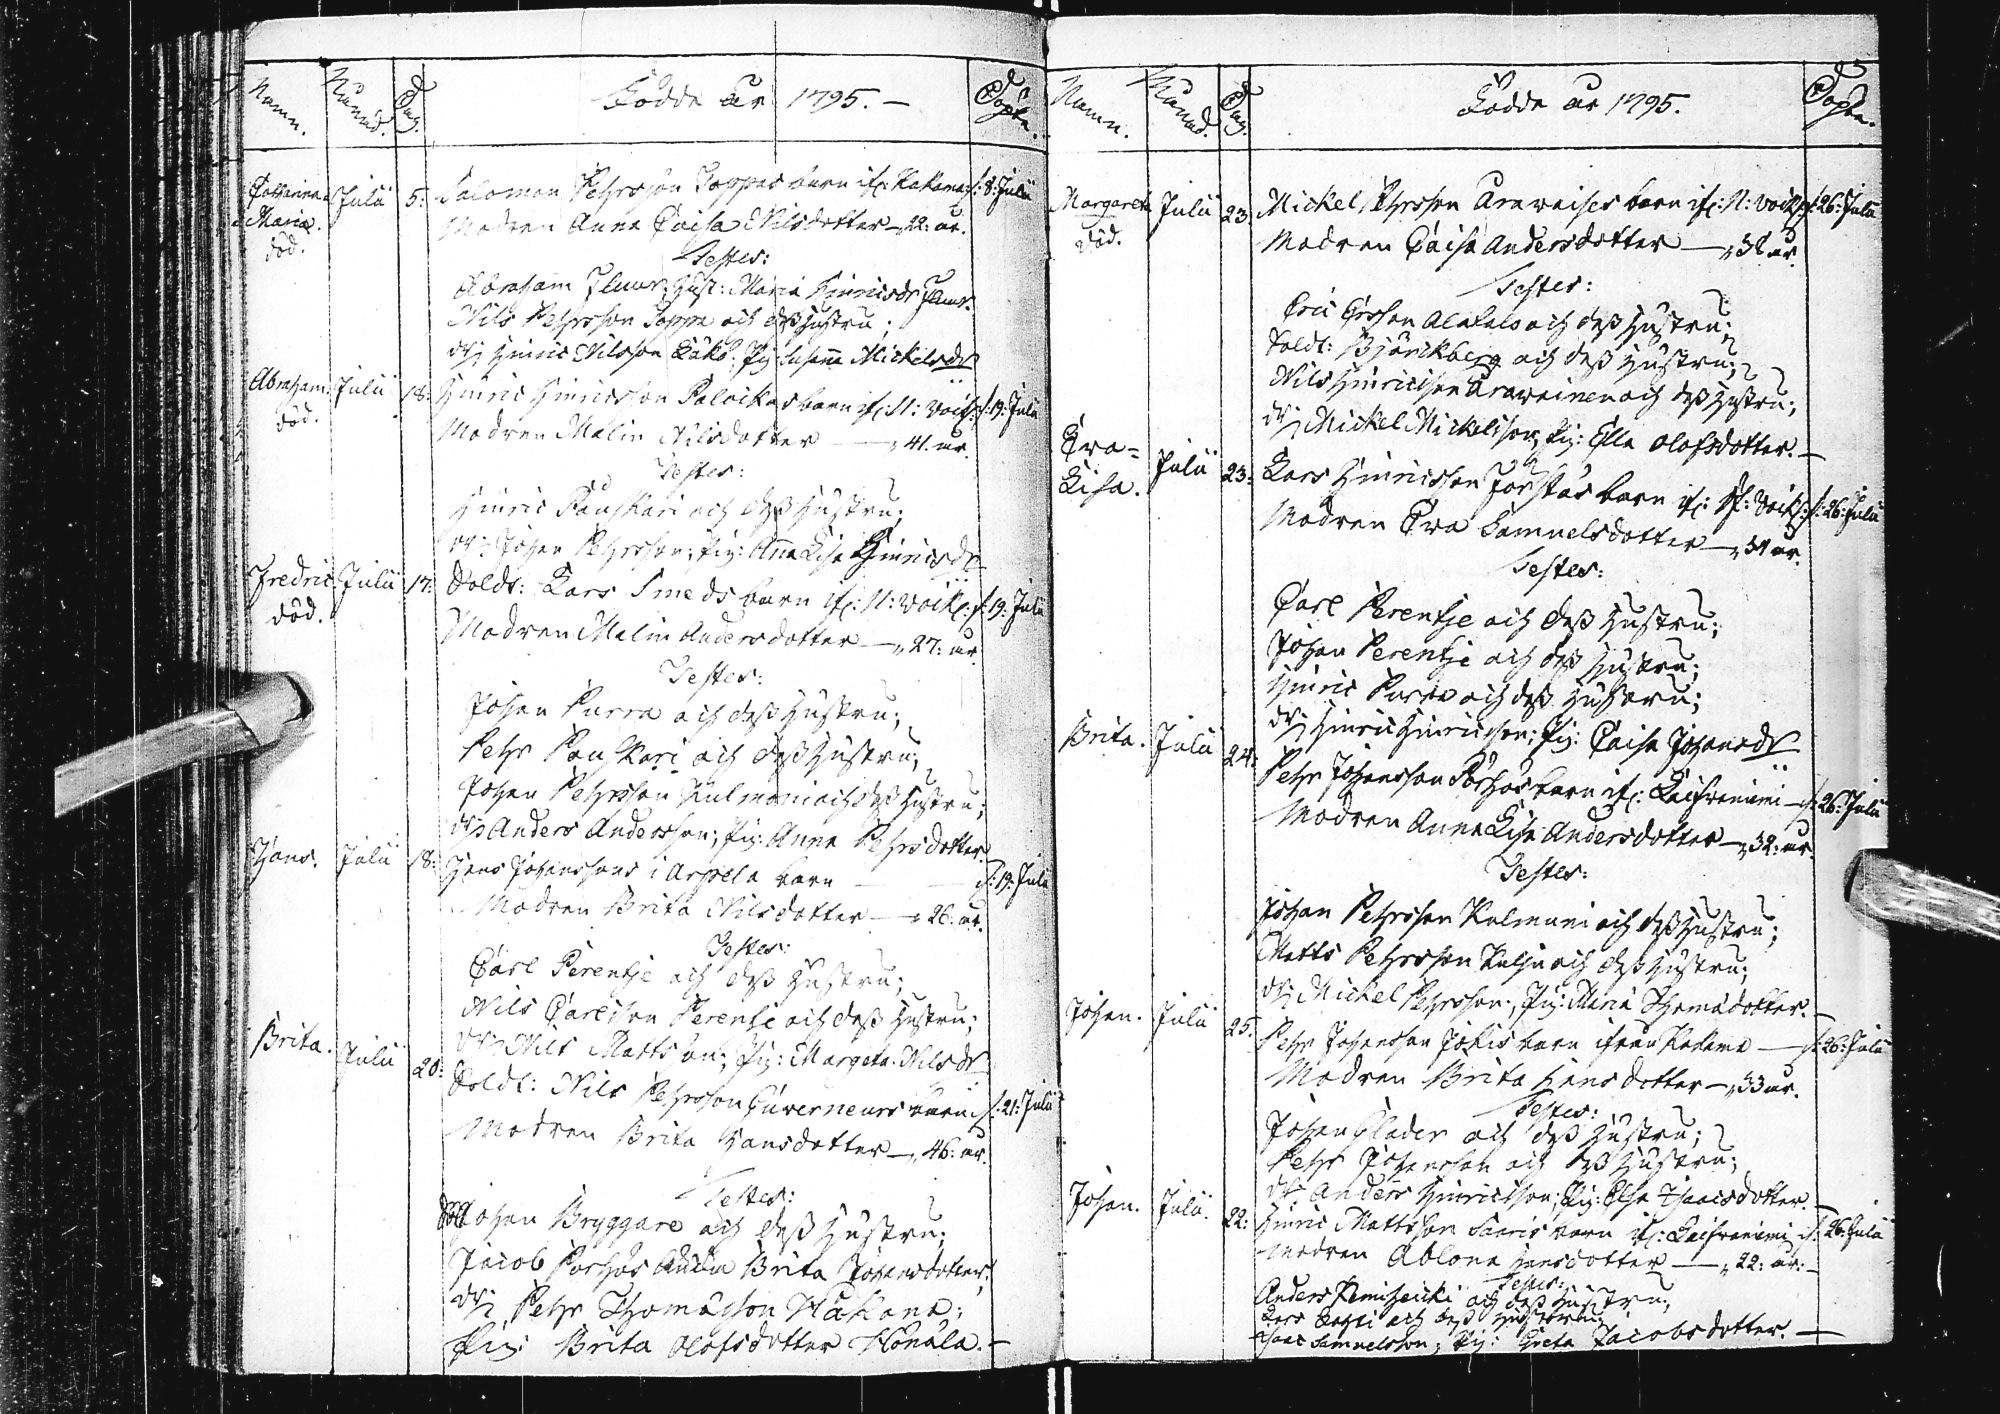 Namn. Månad. Dag. Födde år 1795. — Döpte.
Catharina Julii 5: Salomon Pehrsson Poppas barn if: Kukana d: 8: Julii
Maria. Modren Anna Caisa Nilsdotter — 22: år.
död.
Testes:
Abraham hust: Maria Hinricsdr
Nils Pehrsson Poppa och dess hustru;
Dr: Hinric Nilsson Pig: Susanna Mickelsdr
Abraham. Julii 18: Hinric Hinricsson Paloikas barn if: N: Voik: d: 19: Julii
död. Modren Malin Nilsdotter — 41. år.
Testes:
Hinric Pauskari och dess hustru;
Dr: Johan Pehrsson; Pig: Anna Lisa Hinricsdr
Fredric Julii 17: Soldt: Lars Smeds barn if: N: Voik: d: 19: Julii
död. Modren Malin Andersdotter — 27: år.
Testes:
Johan Purra och dess hustru;
Pehr Pauskari och dess hustru;
Johan Pehrsson Kulmuni och dess hustru;
Dr: Anders Andersson; Pig: Anna Pehrsdotter.
Hans. Julii 18: Hans Johanssons i Arpela barn — d: 19: Julii
Modren Brita Nilsdotter — 26: år.
Testes:
Carl Perentje och dess hustru;
Nils Carlsson Perentje och dess hustru;
Dr: Nils Mattsson; Pig: Margeta Nilsdr
Brita. Julii 20: Soldt: Nils Pehrsson Guverneurs barn d: 21: Julii
Modren Brita Hansdotter — 46: år.
Testes:
Johan Bryggare och dess hustru;
Jacob Porhos Brita Johansdotter;
Dr: Pehr Thomasson Kukana;
Pig: Brita Olofsdotter —
Namn. Månad. Dag. Födde år 1795. Döpte.
Margareta Julii 23. Mickel Pehrsson Arawaises barn if: N: Voik: d: 26: Julii
död. Modren Caisa Andersdotter — 36 år.
Testes:
Eric Ersson Alatalo och dess hustru;
Soldt: Björckberg och dess hustru;
Nils Hinricsson Arawainen och dess hustru;
Dr: Mickel Mickelsson; Pig: Ella Olofsdotter. —
Eva= Julii 23: Lars Hinricsson barn if: Voik: d: 26: Julii
Lisa. Modren Eva Samuelsdotter — 34 år.
Testes:
Carl Perentje och dess hustru;
Johan Perentje och dess hustru;
Hinric Purra och dess hustru;
Dr: Hinric Hinricsson; Pig: Caisa Johansdr
Brita. Julii 24: Pehr Johansson Porhos barn if: Laifvaniemi — d: 26: Julii
Modren Anna Lisa Andersdotter — 32: år.
Testes:
Johan Pehrsson Kulmuni och dess hustru;
Matts Pehrsson och dess hustru;
Dr: Mickel Pehrsson; Pig: Maria Thomasdotter. —
Johan. Julii 25. Pehr Johansson Jokis barn ifrån Kukana — d: 26: Julii
Modren Brita Hansdotter — 33 år.
Testes:
Johan Glader och dess hustru;
Pehr Johansson och dess hustru;
Dr: Anders Hinricsson; Pig: Elsa Isaacsdotter. —
Johan. Julii. 22: Hinric Mattsson Saaris barn if: Laifvaniemi d: 26: Julii
Modren Ablona Hansdotter — 22: år. —
Testes:
Anders och dess hustru;
Lars och dess hustru;
Isaac Samuelsson; Pig: Greta Jacobsdotter. —